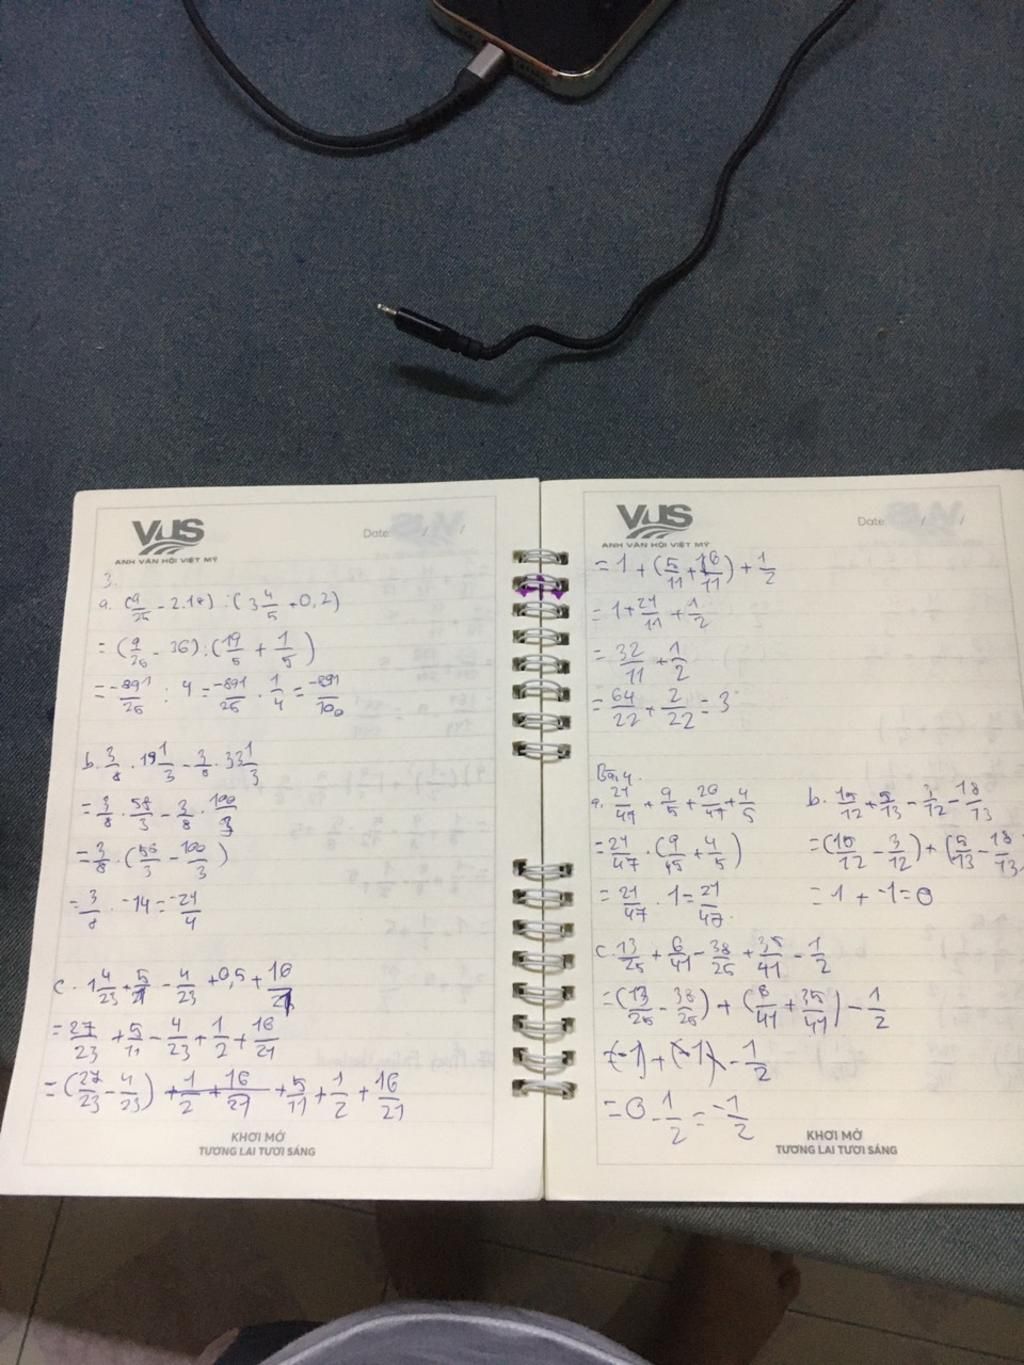 VUS
ANH VĂN HỘI VIỆT MỸ
Date / /
3.
a. (9/25 - 2.18) : (3 4/5 + 0,2)
= (9/25 - 36) : (19/5 + 1/5)
= -891/25 : 4 = -891/25 . 1/4 = -891/100
b. 3/8 . 19 1/3 - 3/8 . 33 1/3
= 3/8 . 58/3 - 3/8 . 100/3
= 3/8 . (58/3 - 100/3)
= 3/8 . -14 = -21/4
c. 1 4/23 + 5/21 - 4/23 + 0,5 + 16/21
= 27/23 + 5/11 - 4/23 + 1/2 + 16/21
= (27/23 - 4/23) + 1/2 + 16/21 + 5/11 + 1/2 + 16/21
KHƠI MỞ
TƯƠNG LAI TƯƠI SÁNG
VUS
ANH VĂN HỘI VIỆT MỸ
Date / /
= 1 + (5/11 + 16/11) + 1/2
= 1 + 21/11 + 1/2
= 32/11 + 1/2
= 64/22 + 2/22 = 3
Bài 4.
a. 21/47 + 9/5 + 26/47 + 4/5
= 21/47 . (9/45 + 4/5)
= 21/47 . 1 = 21/47.
b. 15/12 + 5/13 - 3/12 - 18/13
= (15/12 - 3/12) + (5/13 - 18/13
= 1 + -1 = 0
c. 13/25 + 6/41 - 38/25 + 35/41 - 1/2
= (13/25 - 38/25) + (6/41 + 35/41) - 1/2
= (-1) + (-1) - 1/2
= 0 - 1/2 = -1/2
KHƠI MỞ
TƯƠNG LAI TƯƠI SÁNG